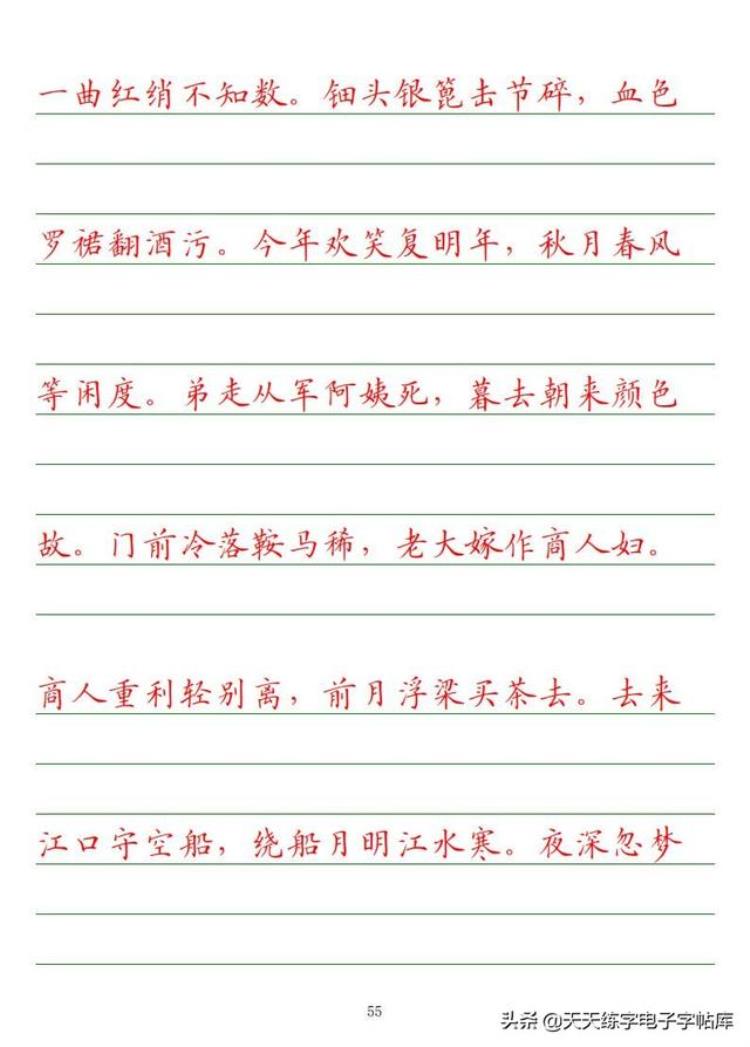 一曲红绡不知数。钿头银篦击节碎，血色
罗裙翻酒污。今年欢笑复明年，秋月春风
等闲度。弟走从军阿姨死，暮去朝来颜色
故。门前冷落鞍马稀，老大嫁作商人妇。
商人重利轻别离，前月浮梁买茶去。去来
江口守空船，绕船月明江水寒。夜深忽梦
55
头条 @天天练字电子字帖库